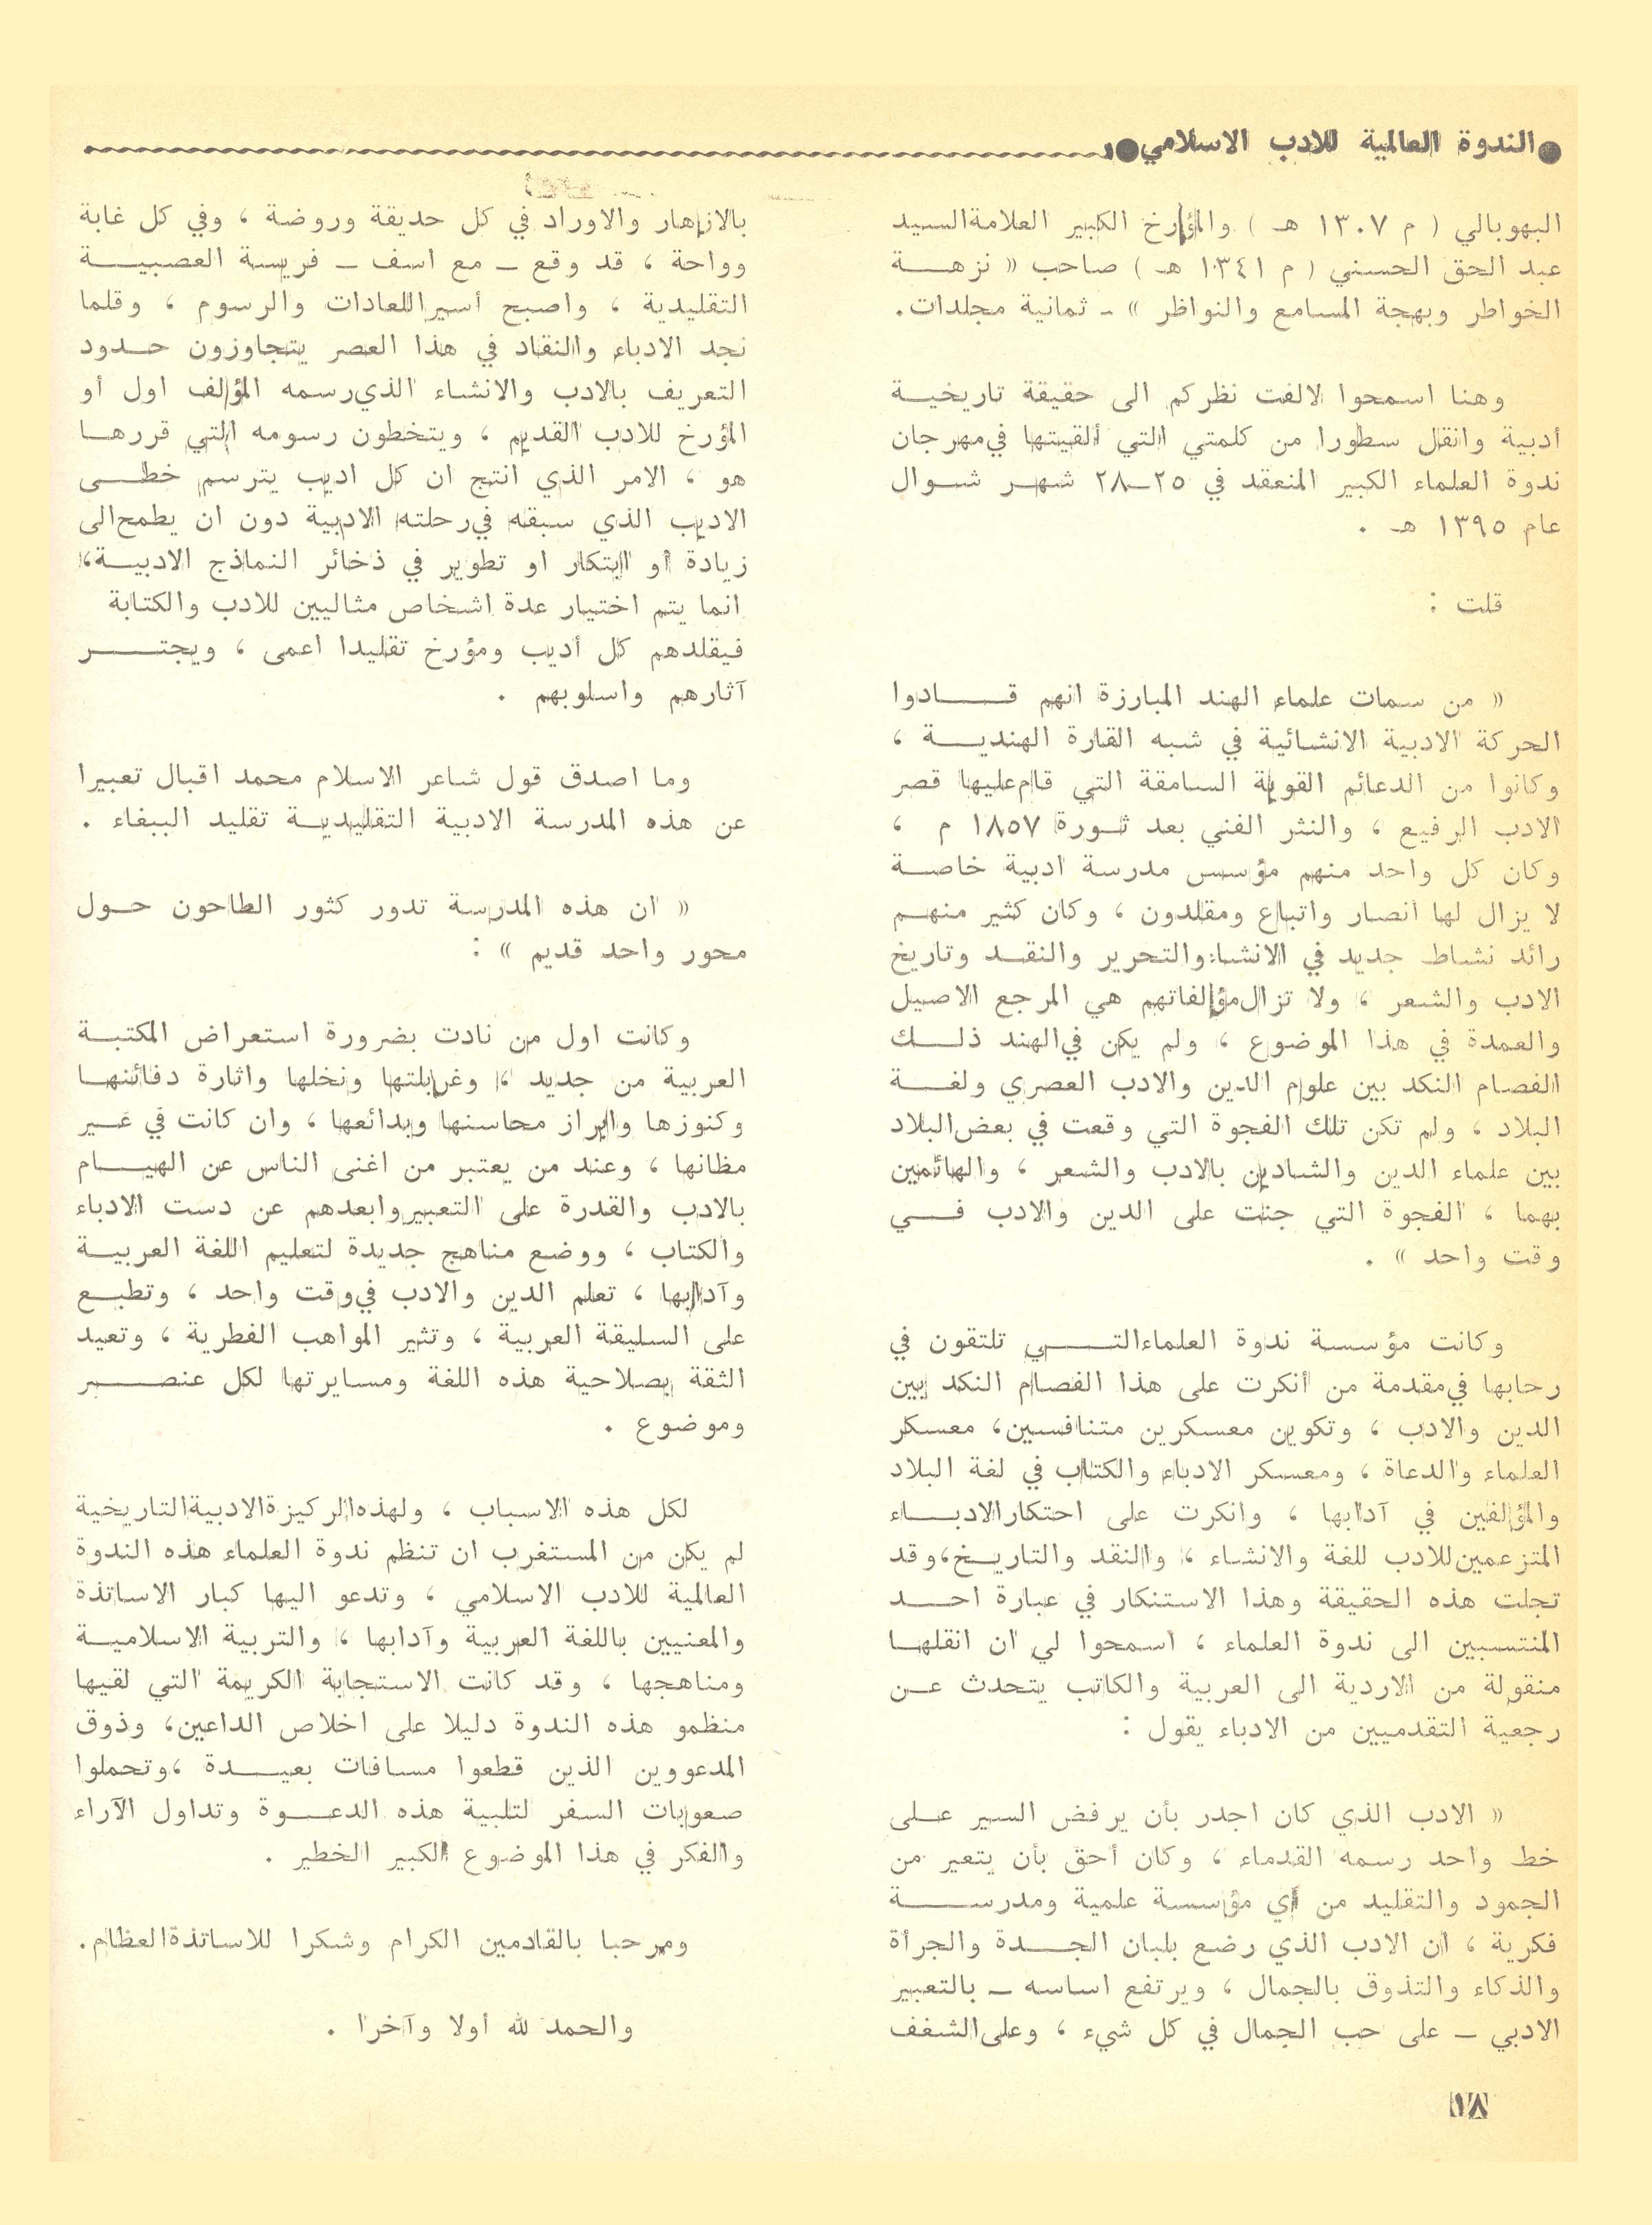 الندوة العالمية للادب الاسلامي
البهوبالي ( م ١٣٠٧ هـ ) والمؤرخ الكبير العلامة السيد
عبد الحق الحسني ( م ١٣٤١ هـ ) صاحب « نزهــة
الخواطر وبهجة المسامع والنواظر » ـ ثمانية مجلدات.
وهنا اسمحوا لالفت نظركم الى حقيقة تاريخيــة
أدبية وانقل سطورا من كلمتي التي ألقيتها في مهرجان
ندوة العلماء الكبير المنعقد في ٢٥ـ٢٨ شهـر شـوال
عام ١٣٩٥ هـ .
قلت :
« من سمات علماء الهند المبارزة انهم قــادوا
الحركة الادبية الانشائية في شبه القارة الهنديــة ،
وكانوا من الدعائم القوية السامقة التي قام عليها قصر
الادب الرفيع ، والنثر الفني بعد ثـورة ١٨٥٧ م ،
وكان كل واحد منهم مؤسس مدرسة ادبية خاصـة
لا يزال لها انصار واتباع ومقلدون ، وكان كثير منهـم
رائد نشاط جديد في الانشاء والتحرير والنقـد وتاريخ
الادب والشعر ، ولا تزال مؤلفاتهم هي المرجع الاصيل
والعمدة في هذا الموضوع ، ولم يكن في الهند ذلــك
الفصام النكد بين علوم الدين والادب العصري ولغــة
البلاد ، ولم تكن تلك الفجوة التي وقعت في بعض البلاد
بين علماء الدين والشادين بالادب والشعر ، والهائمين
بهما ، الفجوة التي جنت على الدين والادب فــي
وقت واحد » .
وكانت مؤسسة ندوة العلماء التــي تلتقون في
رحابها في مقدمة من أنكرت على هذا الفصام النكد بين
الدين والادب ، وتكوين معسكرين متنافسين، معسكر
العلماء والدعاة ، ومعسكر الادباء والكتاب في لغة البلاد
والمؤلفين في آدابها ، وانكرت على احتكار الادبــاء
المتزعمين للادب للغة والانشاء ، والنقد والتاريـخ، وقد
تجلت هذه الحقيقة وهذا الاستنكار في عبارة احــد
المنتسبين الى ندوة العلماء ، اسمحوا لي ان انقلهـا
منقولة من الاردية الى العربية والكاتب يتحدث عـن
رجعية التقدميين من الادباء يقول :
« الادب الذي كان اجدر بأن يرفض السير علـى
خط واحد رسمه القدماء ، وكان أحق بأن يتعير من
الجمود والتقليد من أي مؤسسة علمية ومدرســة
فكرية ، ان الادب الذي رضع بلبان الجـدة والجرأة
والذكاء والتذوق بالجمال ، ويرتفع اساسه ـ بالتعبير
الادبي ـ على حب الجمال في كل شيء ، وعلى الشغف
بالازهار والاوراد في كل حديقة وروضة ، وفي كل غابة
وواحة ، قد وقع ـ مع اسف ـ فريسة العصبيــة
التقليدية ، واصبح أسير اللعادات والرسوم ، وقلما
نجد الادباء والنقاد في هذا العصر يتجاوزون حـدود
التعريف بالادب والانشاء الذي رسمه المؤلف اول أو
المؤرخ للادب القديم ، ويتخطون رسومه التي قررهـا
هو ، الامر الذي انتج ان كل اديب يترسم خطــى
الاديب الذي سبقه في رحلته الادبية دون ان يطمح الى
زيادة أو ابتكار او تطوير في ذخائر النماذج الادبيـة،
انما يتم اختيار عدة اشخاص مثاليين للادب والكتابة
فيقلدهم كل أديب ومؤرخ تقليدا اعمى ، ويجتــر
آثارهم واسلوبهم .
وما اصدق قول شاعر الاسلام محمد اقبال تعبيرا
عن هذه المدرسة الادبية التقليديـة تقليد الببغاء .
« ان هذه المدرسة تدور كثور الطاحون حـول
محور واحد قديم » :
وكانت اول من نادت بضرورة استعراض المكتبـة
العربية من جديد ، وغربلتها ونخلها واثارة دفائنهـا
وكنوزها وابراز محاسنها وبدائعها ، وان كانت في غـير
مظانها ، وعند من يعتبر من اغنى الناس عن الهيــام
بالادب والقدرة على التعبير وابعدهم عن دست الادباء
والكتاب ، ووضع مناهج جديدة لتعليم اللغة العربيـة
وآدابها ، تعلم الدين والادب في وقت واحد ، وتطبـع
على السليقة العربية ، وتثير المواهب الفطرية ، وتعيد
الثقة بصلاحية هذه اللغة ومسايرتها لكل عنصــر
وموضوع .
لكل هذه الاسباب ، ولهذه الركيزة الادبية التاريخية
لم يكن من المستغرب ان تنظم ندوة العلماء هذه الندوة
العالمية للادب الاسلامي ، وتدعو اليها كبار الاساتذة
والمعنيين باللغة العربية وآدابها ، والتربية الاسلاميـة
ومناهجها ، وقد كانت الاستجابة الكريمة التي لقيها
منظمو هذه الندوة دليلا على اخلاص الداعين، وذوق
المدعووين الذين قطعوا مسافات بعيــدة ، وتحملوا
صعوبات السفر لتلبية هذه الدعـوة وتداول الآراء
والفكر في هذا الموضوع الكبير الخطير .
ومرحبا بالقادمين الكرام وشكرا للاساتذة العظام.
والحمد لله أولا وآخرا .
١٨